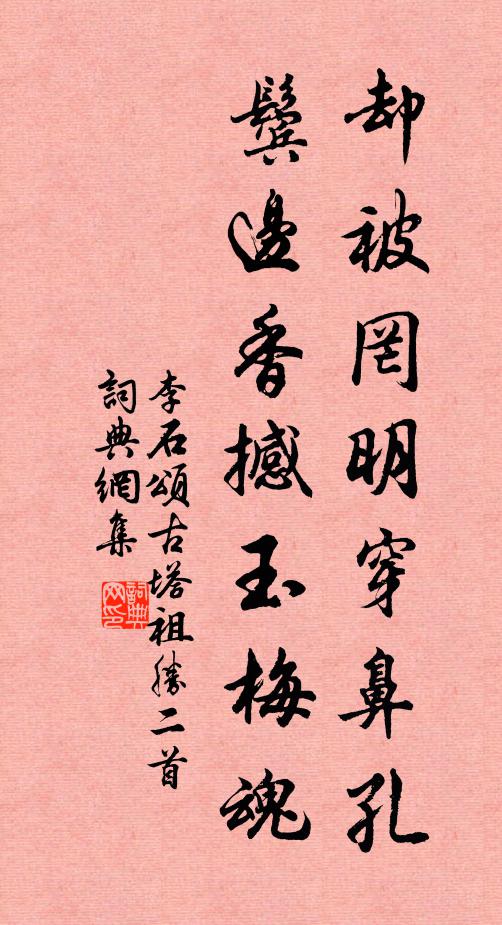 却被罔明穿鼻孔
鬢邊香撼玉梅魂
李石頌古塔祖勝二首
詞典網集
詞典網印